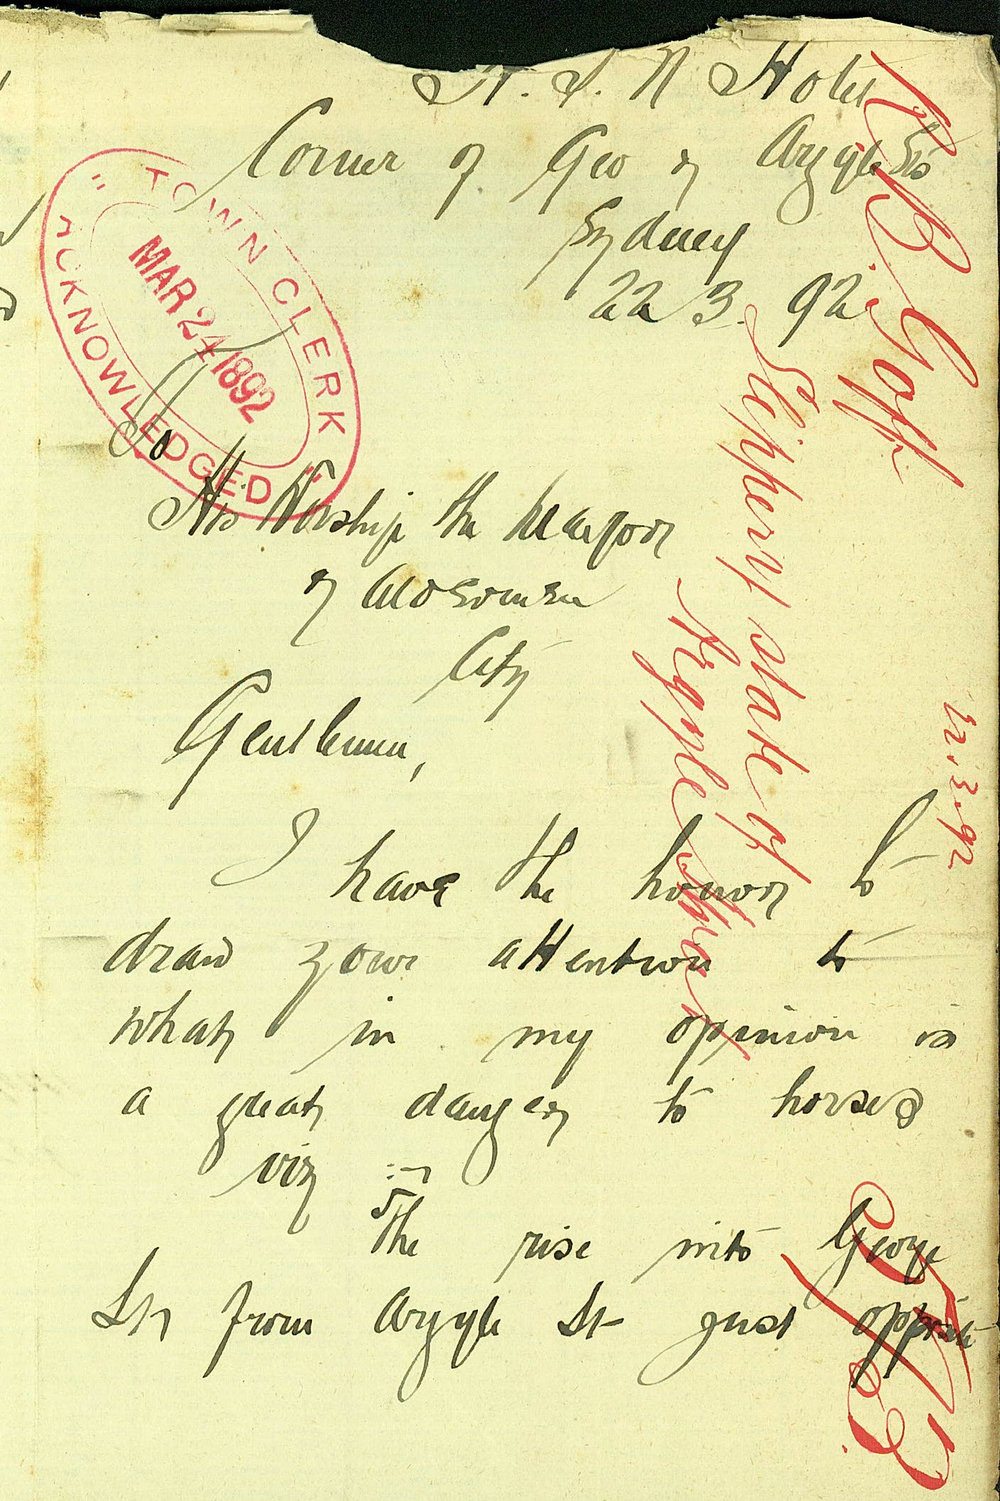 A. S. N Hotel
Corner of Geo & Argyle Sts
Sydney
22 3. 92
" TOWN CLERK "
MAR 24 1892
ACKNOWLEDGED
To
His Worship the Mayor
& Aldermen
City
Gentlemen,
I have the honor to
draw your attention to
what in my opinion is
a great danger to horses
viz :-
The rise into George
St from Argyle St just opposite
R. B. Goff
Slippery state of
Argyle Street
22.3.92